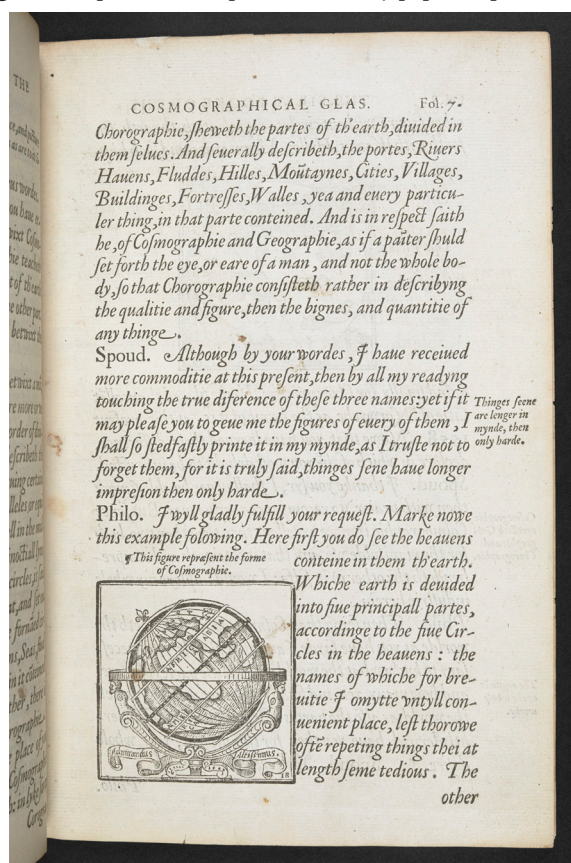 THE
COSMOGRAPHICAL GLAS. Fol. 7.
Chorographie, sheweth the partes of th'earth, diuided in
them selues. And seuerally describeth, the portes, Riuers
Hauens, Fluddes, Hilles, Moũtaynes, Cities, Villages,
Buildinges, Fortresses, Walles, yea and euery particu-
ler thing, in that parte conteined. And is in respect saith
he, of Cosmographie and Geographie, as if a paĩter shuld
set forth the eye, or eare of a man, and not the whole bo-
dy, so that Chorographie consisteth rather in describyng
the qualitie and figure, then the bignes, and quantitie of
any thinge.
Spoud. Although by your wordes, I haue receiued
more commoditie at this present, then by all my readyng
touching the true diference of these three names: yet if it
may please you to geue me the figures of euery of them, I
shall so stedfastly printe it in my mynde, as I truste not to
forget them, for it is truly said, thinges sene haue longer
impresion then only harde.
Thinges seene
are lenger in
mynde, then
only harde.
Philo. I wyll gladly fulfill your request. Marke nowe
this example folowing. Here first you do see the heauens
¶ This figure repræsent the forme
of Cosmographie.
conteine in them th'earth.
Whiche earth is deuided
into fiue principall partes,
accordinge to the fiue Cir-
cles in the heauens : the
names of whiche for bre-
uitie I omytte vntyll con-
uenient place, lest thorowe
oftẽ repeting things thei at
length seme tedious. The
other